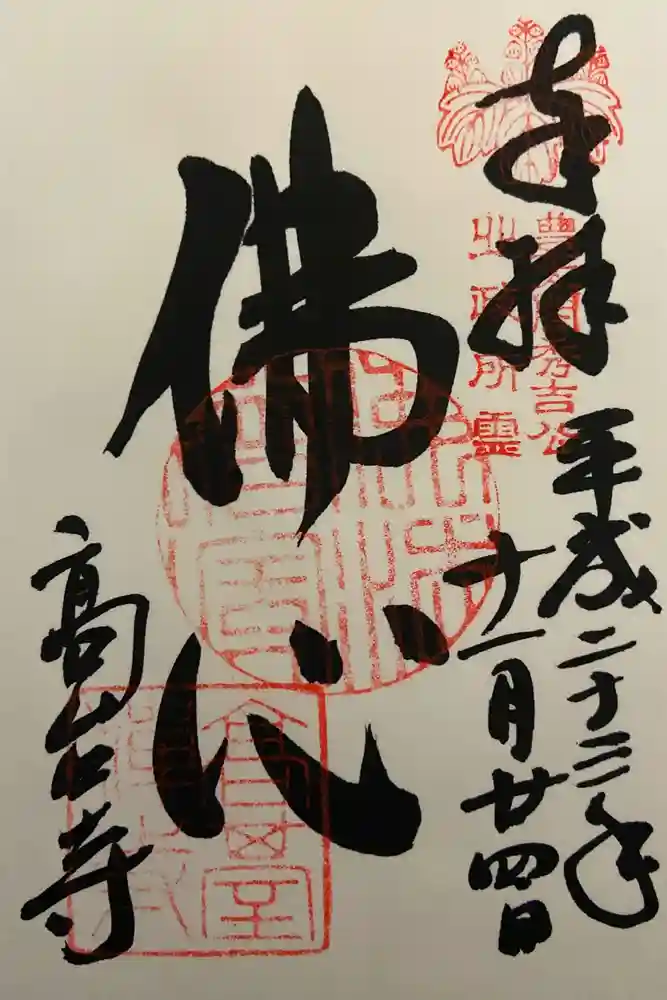 奉拝
秀吉公
北政所霊
平成二十三年
十一月廿四日
佛心
高台寺